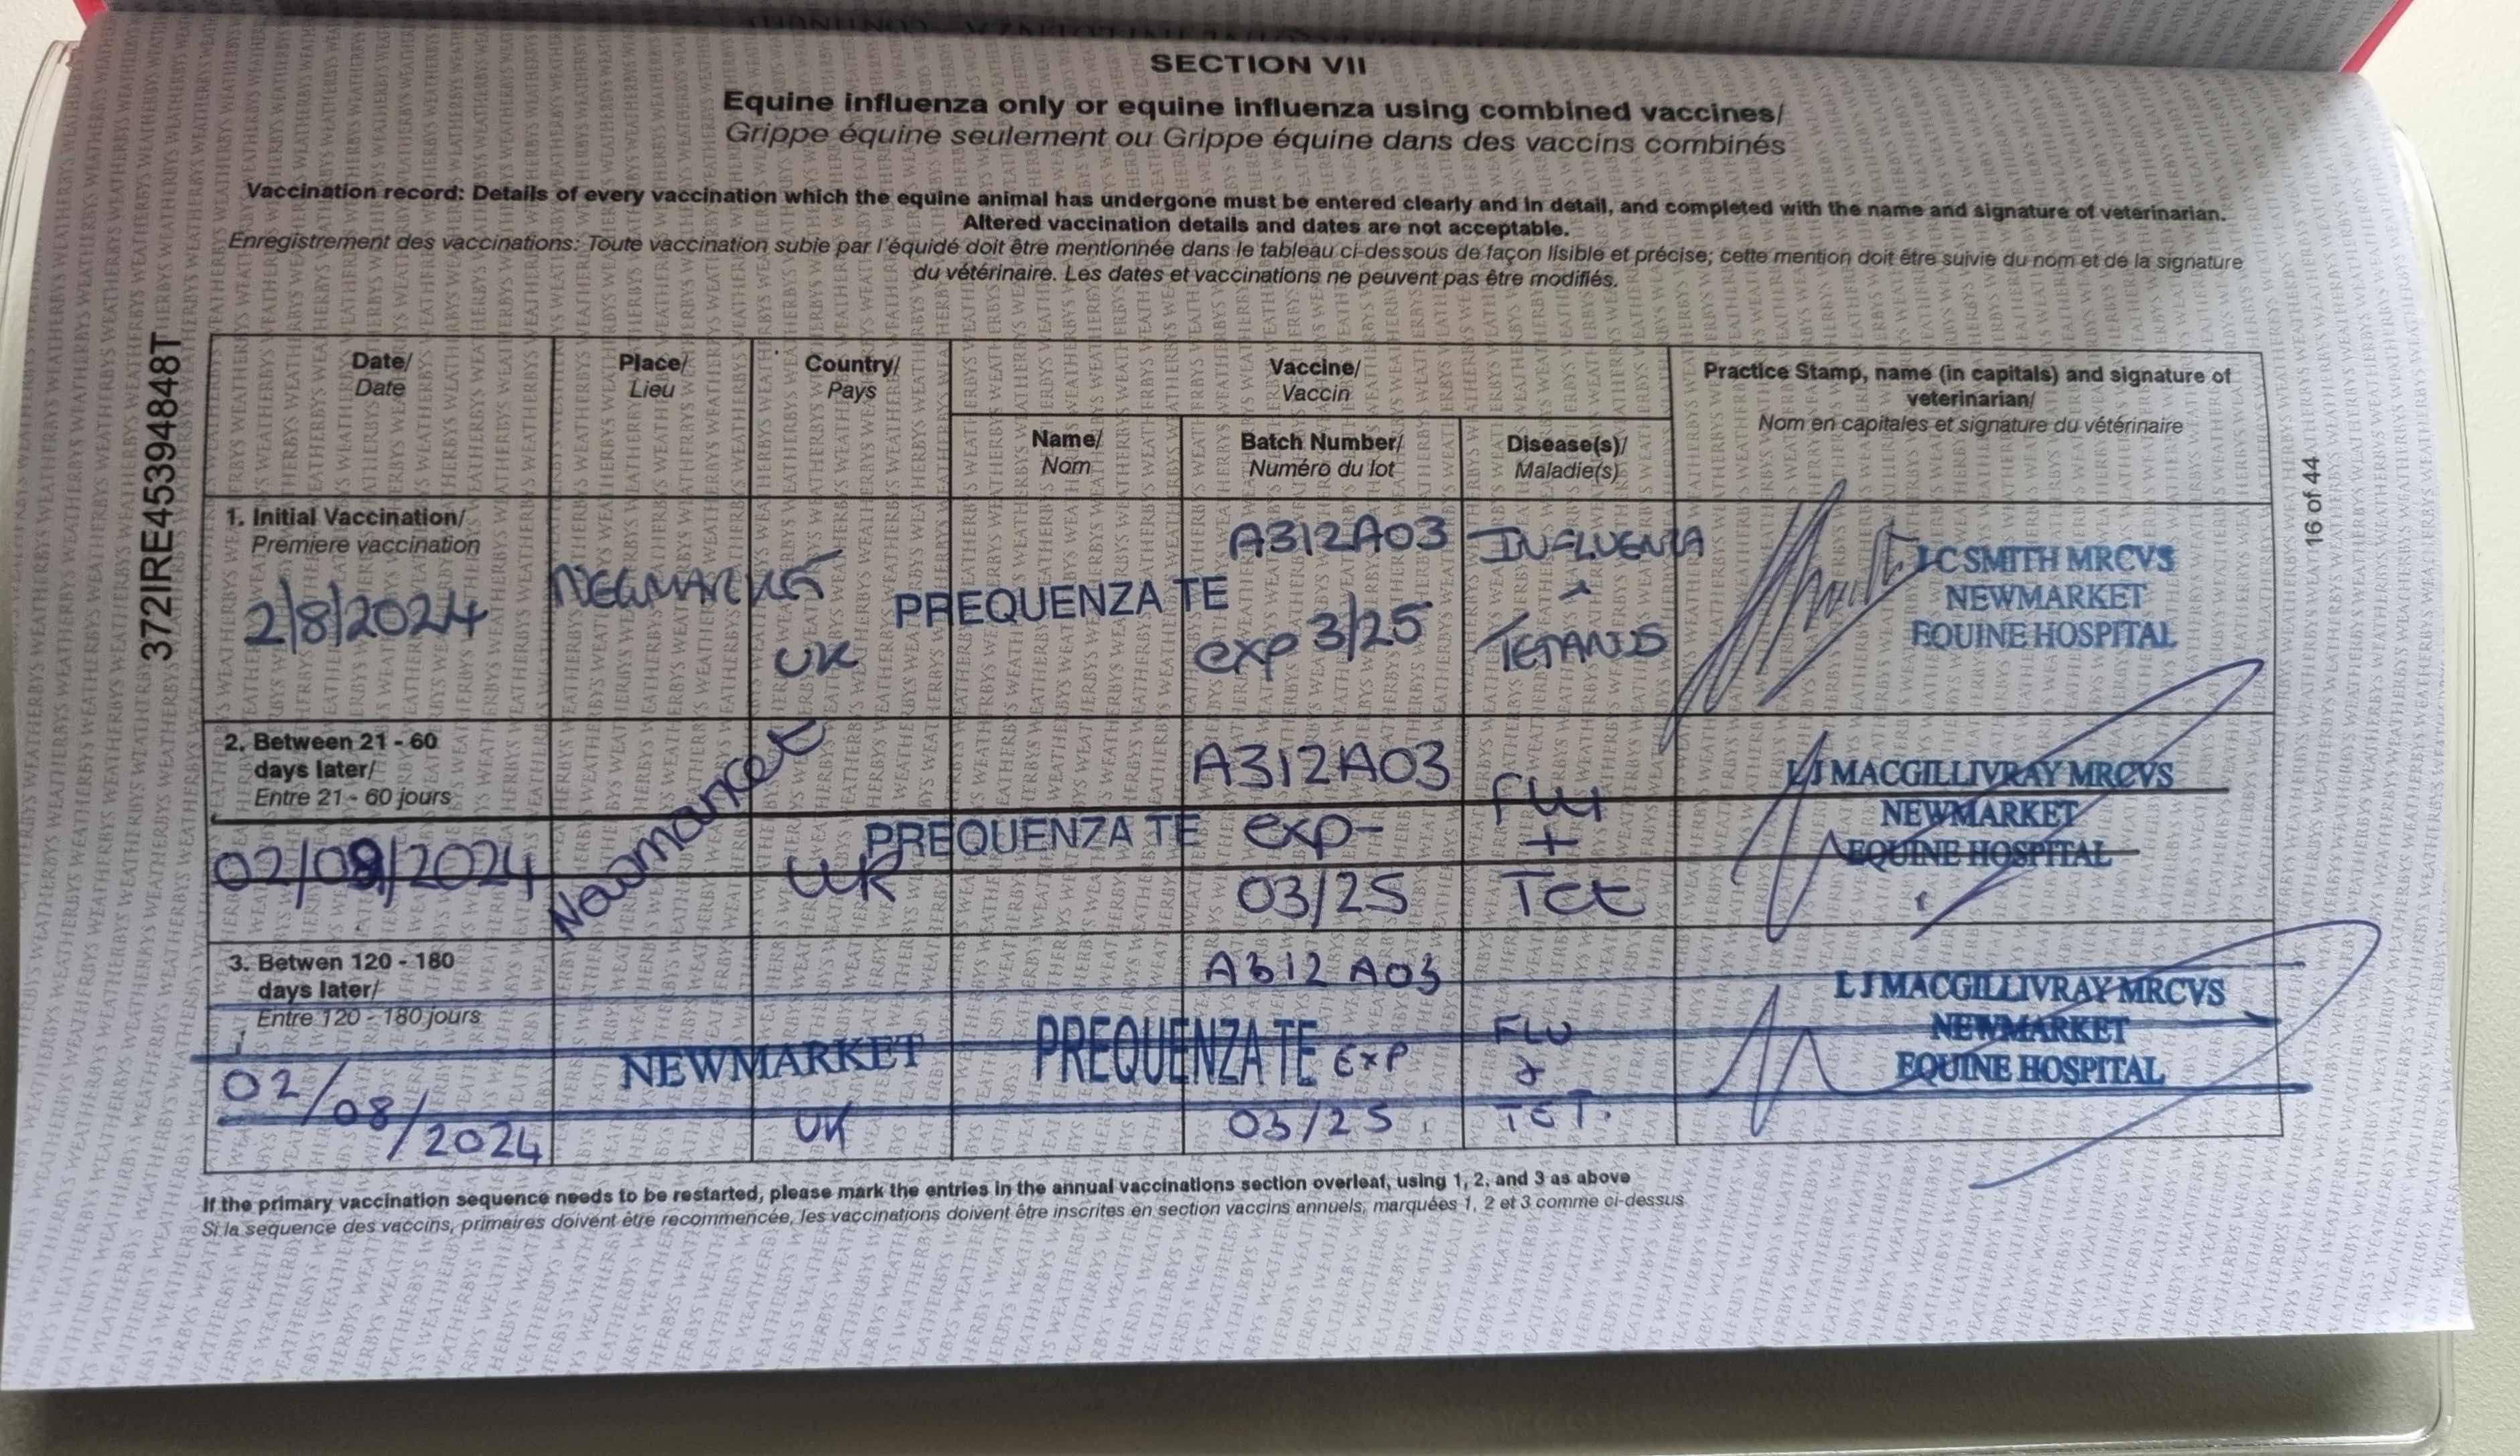 SECTION VII
Equine influenza only or equine influenza using combined vaccines/
Grippe équine seulement ou Grippe équine dans des vaccins combinés
Vaccination record: Details of every vaccination which the equine animal has undergone must be entered clearly and in detail, and completed with the name and signature of veterinarian.
Altered vaccination details and dates are not acceptable.
Enregistrement des vaccinations: Toute vaccination subie par l'équidé doit être mentionnée dans le tableau ci-dessous de façon lisible et précise; cette mention doit être suivie du nom et de la signature
du vétérinaire. Les dates et vaccinations ne peuvent pas être modifiés.
372IRE45394848T
16 of 44
Date/
Date
Place/
Lieu
Country/
Pays
Vaccine/
Vaccin
Name/
Nom
Batch Number/
Numéro du lot
Disease(s)/
Maladie(s)
Practice Stamp, name (in capitals) and signature of
veterinarian/
Nom en capitales et signature du vétérinaire
1. Initial Vaccination/
Premiere vaccination
2/8/2024
NEWMARKET
UK
PREQUENZA TE
A312A03
exp 3/25
INFLUENZA
+
TETANUS
J C SMITH MRCVS
NEWMARKET
EQUINE HOSPITAL
2. Between 21 - 60
days later/
Entre 21 - 60 jours
02/09/2024
Newmarket
UK
PREQUENZA TE
A312A03
exp-
03/25
Flu
+
Tet
L J MACGILLIVRAY MRCVS
NEWMARKET
EQUINE HOSPITAL
3. Betwen 120 - 180
days later/
Entre 120 - 180 jours
02/08/2024
NEWMARKET
UK
PREQUENZA TE
A312A03
EXP
03/25
FLU
&
TET.
L J MACGILLIVRAY MRCVS
NEWMARKET
EQUINE HOSPITAL
If the primary vaccination sequence needs to be restarted, please mark the entries in the annual vaccinations section overleaf, using 1, 2, and 3 as above
Si la sequence des vaccins, primaires doivent être recommencée, les vaccinations doivent être inscrites en section vaccins annuels, marquées 1, 2 et 3 comme ci-dessus